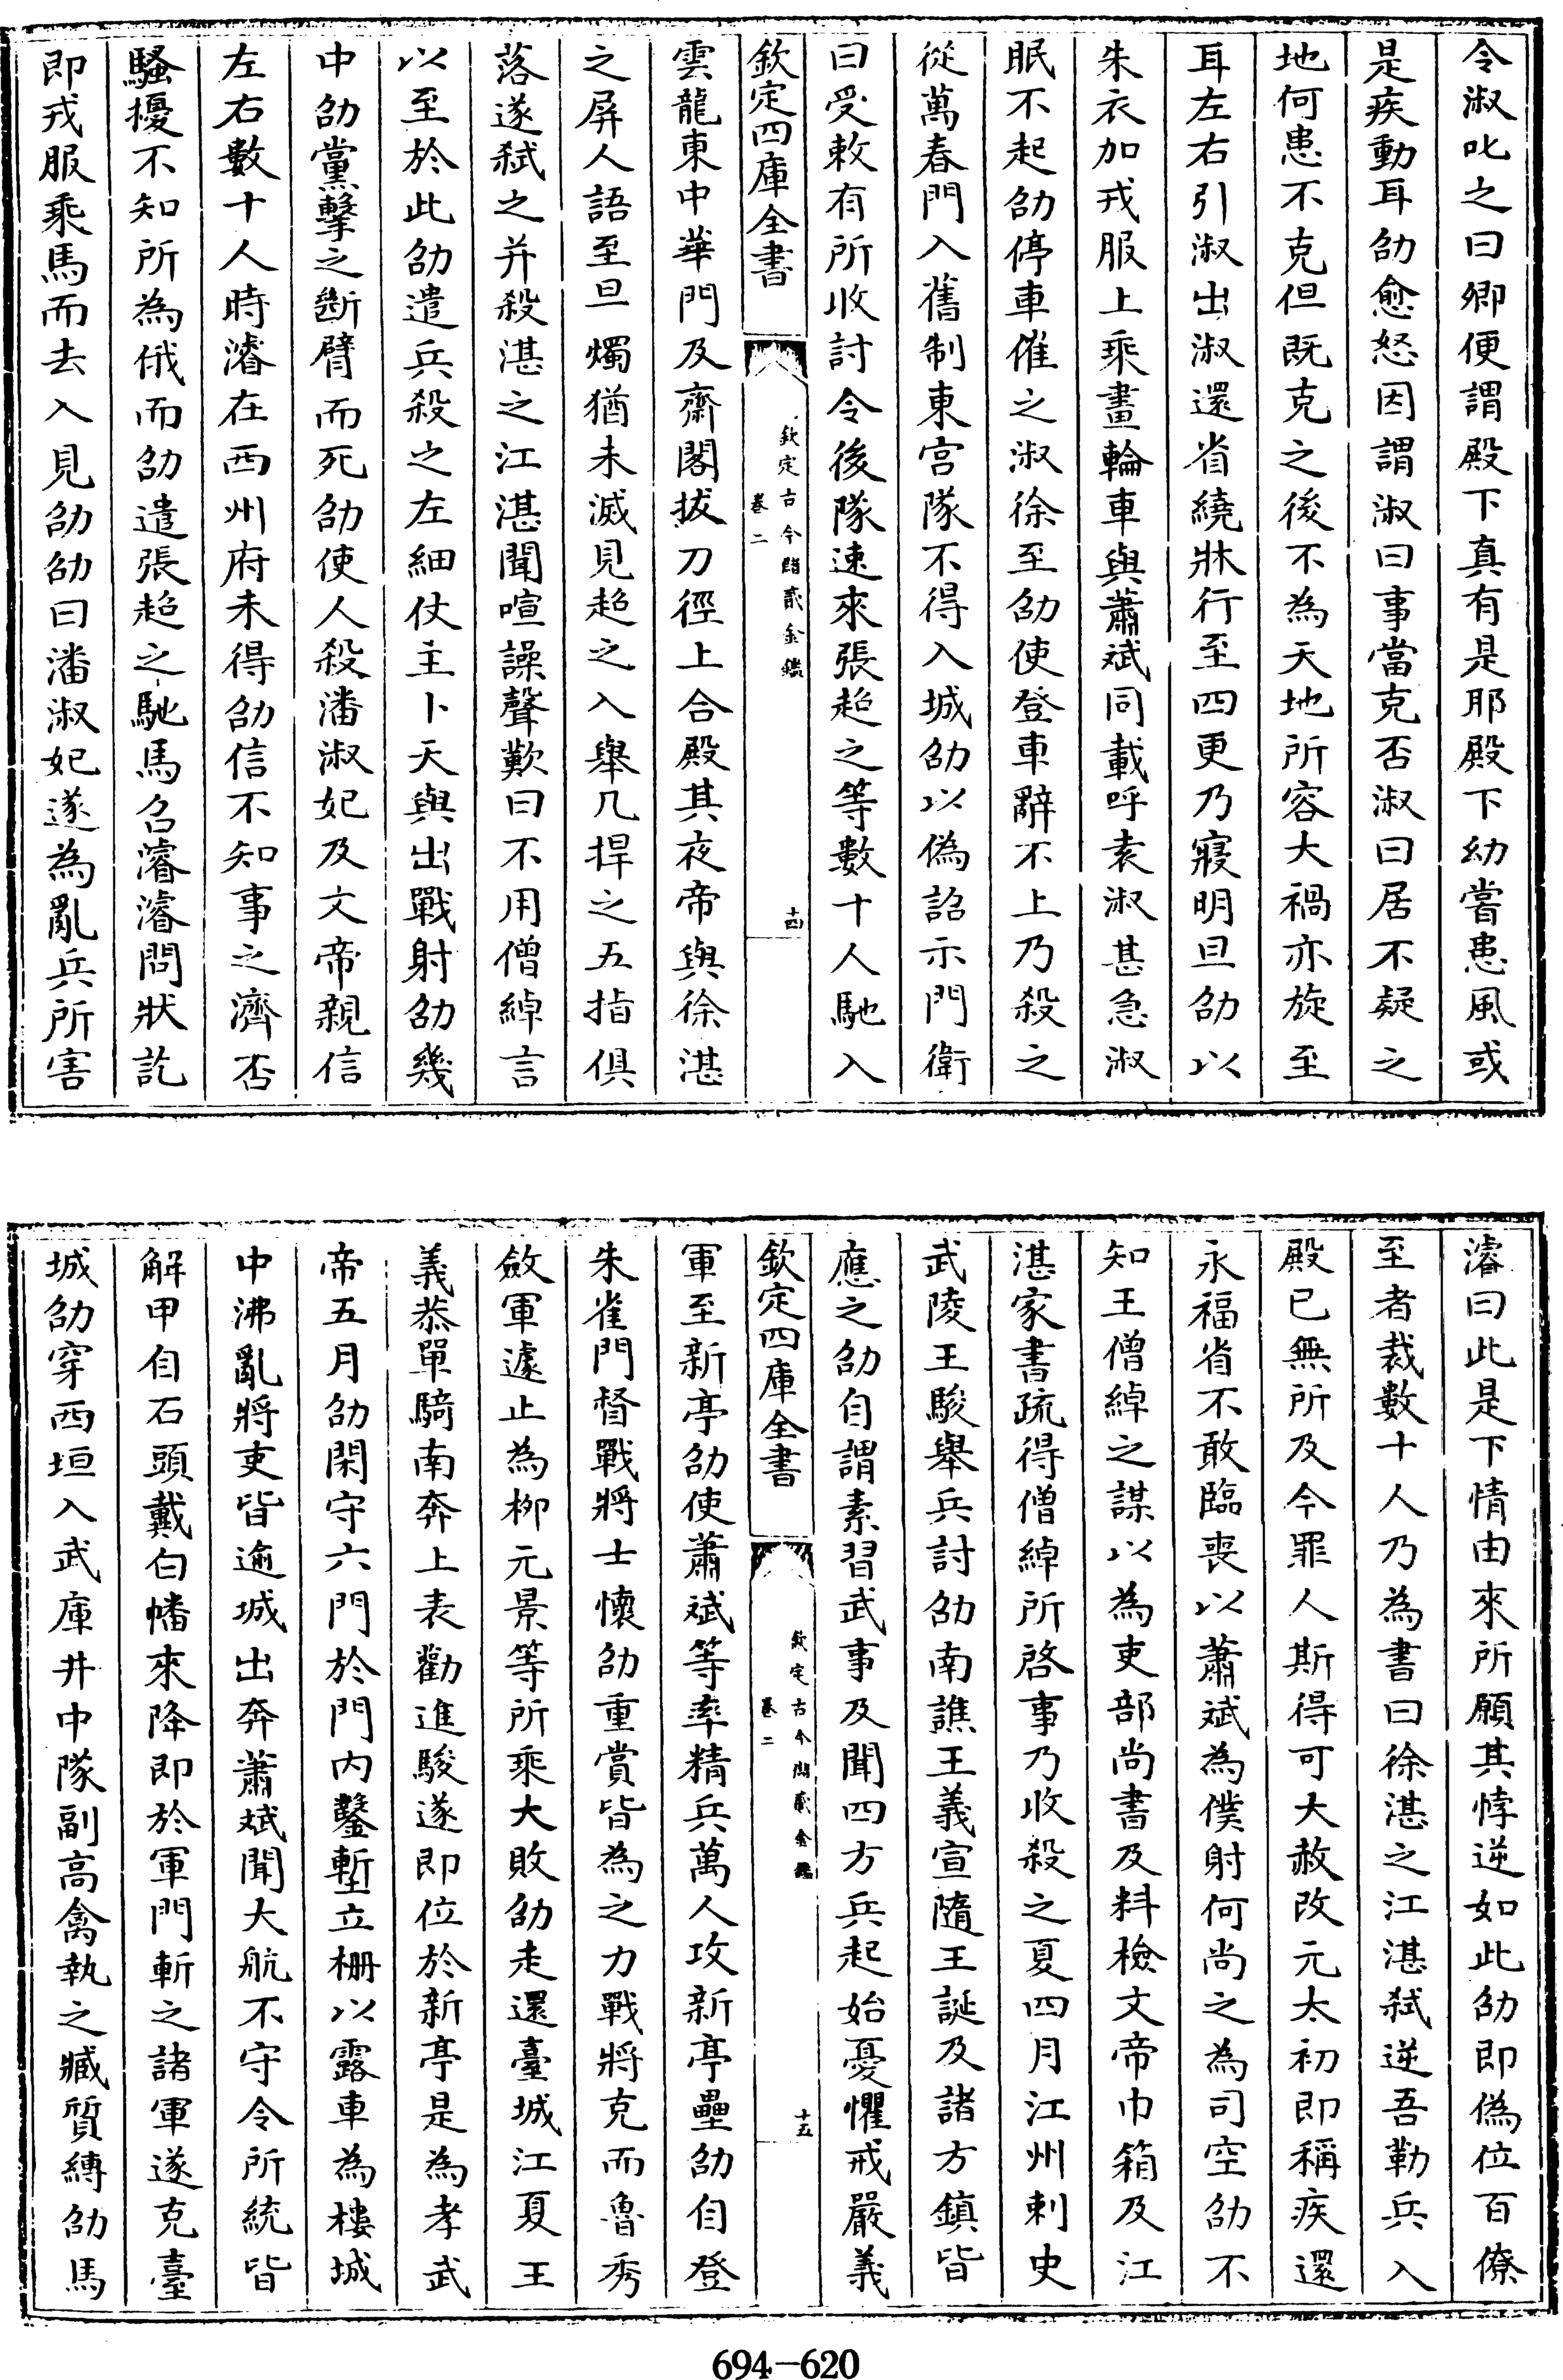 令淑叱之曰卿便謂殿下真有是耶殿下幼嘗患風或
是疾動耳劭愈怒因謂淑曰事當克否淑曰居不疑之
地何患不克但既克之後不為天地所容大禍亦旋至
耳左右引淑出淑還省繞牀行至四更乃寢明旦劭以
朱衣加戎服上乘畫輪車與蕭斌同載呼袁淑甚急淑
眠不起劭停車催之淑徐至劭使登車辭不上乃殺之
從萬春門入舊制東宮隊不得入城劭以偽詔示門衛
曰受敕有所收討令後隊速來張超之等數十人馳入
欽定四庫全書
欽定古今儲貳金鑑
卷二
十四
雲龍東中華門及齋閣拔刀徑上合殿其夜帝與徐湛
之屏人語至旦燭猶未滅見超之入舉几捍之五指俱
落遂弒之并殺湛之江湛聞喧譟聲歎曰不用僧綽言
以至於此劭遣兵殺之左細仗主卜天與出戰射劭幾
中劭黨擊之斷臂而死劭使人殺潘淑妃及文帝親信
左右數十人時濬在西州府未得劭信不知事之濟否
騷擾不知所為俄而劭遣張超之馳馬召濬濬問狀訖
即戎服乘馬而去入見劭劭曰潘淑妃遂為亂兵所害
濬曰此是下情由來所願其悖逆如此劭即偽位百僚
至者裁數十人乃為書曰徐湛之江湛弒逆吾勒兵入
殿已無所及今罪人斯得可大赦改元太初即稱疾還
永福省不敢臨喪以蕭斌為僕射何尚之為司空劭不
知王僧綽之謀以為吏部尚書及料檢文帝巾箱及江
湛家書疏得僧綽所啓事乃收殺之夏四月江州刺史
武陵王駿舉兵討劭南譙王義宣隨王誕及諸方鎮皆
應之劭自謂素習武事及聞四方兵起始憂懼戒嚴義
欽定四庫全書
欽定古今儲貳金鑑
卷二
十五
軍至新亭劭使蕭斌等率精兵萬人攻新亭壘劭自登
朱雀門督戰將士懷劭重賞皆為之力戰將克而魯秀
斂軍遽止為柳元景等所乘大敗劭走還臺城江夏王
義恭單騎南奔上表勸進駿遂即位於新亭是為孝武
帝五月劭閑守六門於門內鑿塹立柵以露車為樓城
中沸亂將吏皆逾城出奔蕭斌聞大航不守令所統皆
解甲自石頭戴白幡來降即於軍門斬之諸軍遂克臺
城劭穿西垣入武庫井中隊副高禽執之臧質縛劭馬
694-620